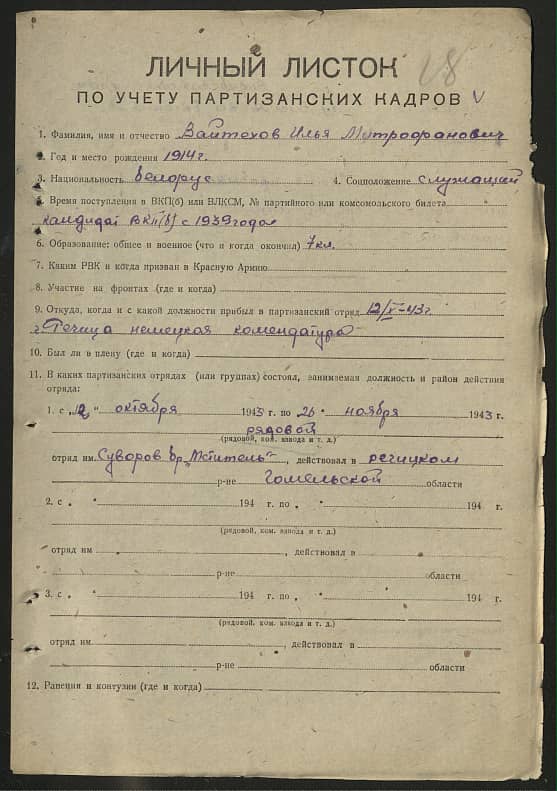 28
ЛИЧНЫЙ ЛИСТОК
ПО УЧЕТУ ПАРТИЗАНСКИХ КАДРОВ V
1. Фамилия, имя и отчество Вайтехов Илья Митрофанович
2. Год и место рождения 1914 г.
3. Национальность белорус 4. Соцположение служащий
5. Время поступления в ВКП(б) или ВЛКСМ, № партийного или комсомольского билета
кандидат ВКП(б) с 1939 года
6. Образование: общее и военное (что и когда окончил) 7 кл.
7. Каким РВК и когда призван в Красную Армию
8. Участие на фронтах (где и когда)
9. Откуда, когда и с какой должности прибыл в партизанский отряд 12/X-43 г.
г. Речица немецкая комендатура
10. Был ли в плену (где и когда)
11. В каких партизанских отрядах (или группах) состоял, занимаемая должность и район действия
отряда:
1. с „12" октября 1943 г. по 26 " ноября 1943 г.
рядовой
(рядовой, ком. взвода и т. д.)
отряд им. Суворов бр. „Мститель", действовал в речицком
р-не Гомельской области
2. с " " 194 г. по " 194 г.
(рядовой, ком. взвода и т. д.)
отряд им , действовал в
р-не области
3. с " " 194 г. по " 194 г.
(рядовой, ком. взвода и т. д.)
отряд им. , действовал в
р-не области
12. Ранения и контузии (где и когда)